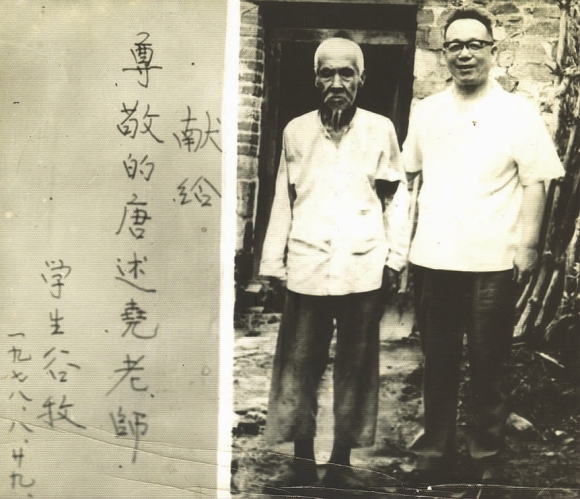 献给
尊敬的唐述尧老師
学生谷牧
一九七八.八.廿九.